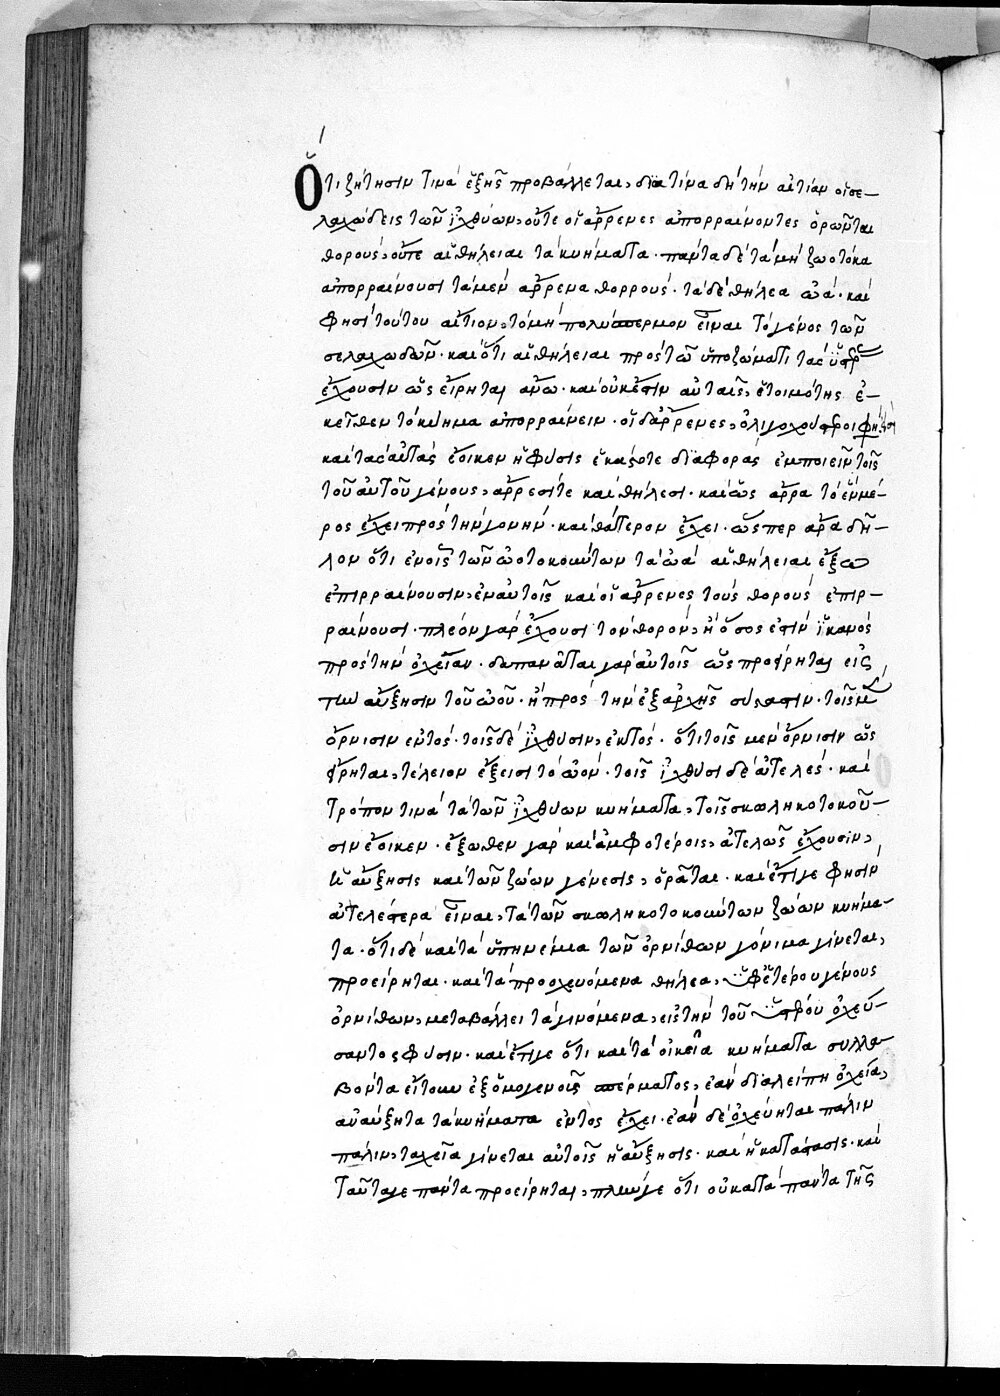 Ὅτι ζήτησιν τινὰ ἑξῆς προβάλλεται, διατίνα δὴ τὴν αἰτίαν οἱ σε-
λαχώδεις τῶν ἰχθύων, οὔτε οἱ ἄρρενες ἀπορραίνοντες ὁρῶνται
θορούς, οὔτε αἱ θήλειαι τὰ κυήματα. πάντα δὲ τὰ μὴ ζωοτόκα
ἀπορραίνουσι τὰ μὲν ἄρρενα θορρούς. τὰ δὲ θήλεα ὠά. καὶ
φησὶ τούτου αἴτιον, τὸ μὴ πολύσπερμον εἶναι τὸ γένος τῶν
σελαχωδῶν. καὶ ὅτι αἱ θήλειαι πρὸς τῶ ὑποζώματι τὰς ὑστέρας
ἔχουσιν ὡς εἴρηται ἄνω. καὶ οὐκ ἔστιν αὐταῖς, ἑτοιμότης ἐ-
κεῖθεν τὸ κύημα ἀπορραίνειν. οἱ δ' ἄρρενες, ὀλιγοχούστεροι φησί
καὶ τὰς αὐτὰς ἔοικεν ἡ φύσις ἑκάστοτε διαφορὰς ἐμποιεῖν τοῖς
τοῦ αὐτοῦ γένους, ἄρρεσί τε καὶ θήλεσι. καὶ ὡς ἄρρα τὸ ἓν μέ-
ρος ἔχει πρὸς τὴν γονήν. καὶ θάτερον ἔχει. ὥσπερ ἄρα δῆ-
λον ὅτι ἐν οἷς τῶν ὠοτοκούντων τὰ ὠὰ αἱ θήλειαι ἔξω
ἐπιρραίνουσιν, ἐν αὐτοῖς καὶ οἱ ἄρρενες τοὺς θοροὺς ἐπιρ-
ραίνουσι. πλέον γὰρ ἔχουσι τὸν θορὸν, ἢ ὅσος ἐστὶν ἱκανὸς
πρὸς τὴν ὀχείαν. δαπανᾶται γὰρ αὐτοῖς ὡς προείρηται εἰς
τὴν αὔξησιν τοῦ ὠοῦ. ἢ πρὸς τὴν ἐξαρχῆς σύστασιν. τοῖς μὲν
ὄρνισιν ἐντός. τοῖς δὲ ἰχθύσιν, ἐκτός. ὅτι τοῖς μὲν ὄρνισιν ὡς
εἴρηται, τέλειον ἔξεισι τὸ ὠόν. τοῖς ἰχθύσι δὲ ἀτελές. καὶ
τρόπον τινὰ τὰ τῶν ἰχθύων κυήματα, τοῖς σκωληκοτοκοῦ-
σιν ἔοικεν. ἔξωθεν γὰρ καὶ ἀμφοτέροις, ἀτελῶς ἔχουσιν,
ἡ αὔξησις καὶ τῶν ζώων γένεσις, ὁρᾶται. καὶ ἔτιγε φησὶν
ἀτελέστερα εἶναι, τὰ τῶν σκωληκοτοκούντων ζώων κυήμα-
τα. ὅτι δὲ καὶ τὰ ὑπηνέμια τῶν ὀρνίθων γόνιμα γίνεται,
προείρηται. καὶ τὰ προοχευόμενα θήλεα, ὑφ' ἑτέρου γένους
ὀρνίθων, μεταβάλλει τὰ γινόμενα, εἰς τὴν τοῦ ὑστέρου ὀχεύ-
σαντος φύσιν. καὶ ἔτιγε ὅτι καὶ τὰ οἰκεῖα κυήματα συλλα-
βόντα εἴτουν ἐξ ὁμογενοῖς σπέρματος, ἐὰν διαλείπῃ ὀχεία,
ἀναύξητα τὰ κυήματα ἐντὸς ἔχει. ἐὰν δὲ ὀχεύηται πάλιν
πάλιν, ταχεῖα γίνεται αὐτοῖς ἡ αὔξησις. καὶ ἡ κατάστασις. καὶ
ταῦταγε πάντα προείρηται, πλήνγε ὅτι οὐ κατὰ πάντα τῆς